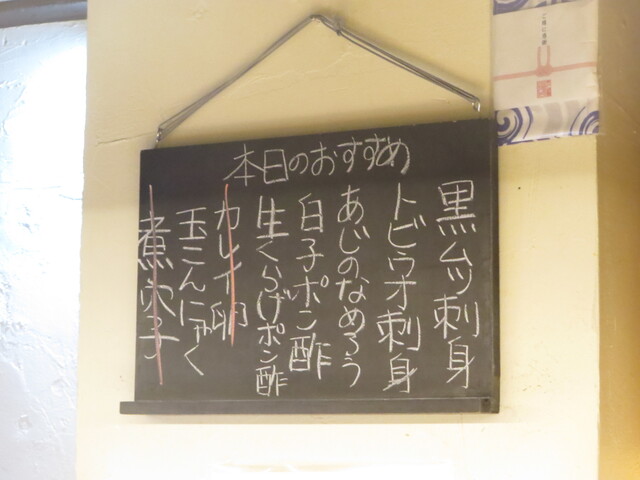 本日のおすすめ
黒ムツ刺身
トビウオ刺身
あじのなめろう
白子ポン酢
生くらげポン酢
カレイ卵
玉こんにゃく
煮穴子